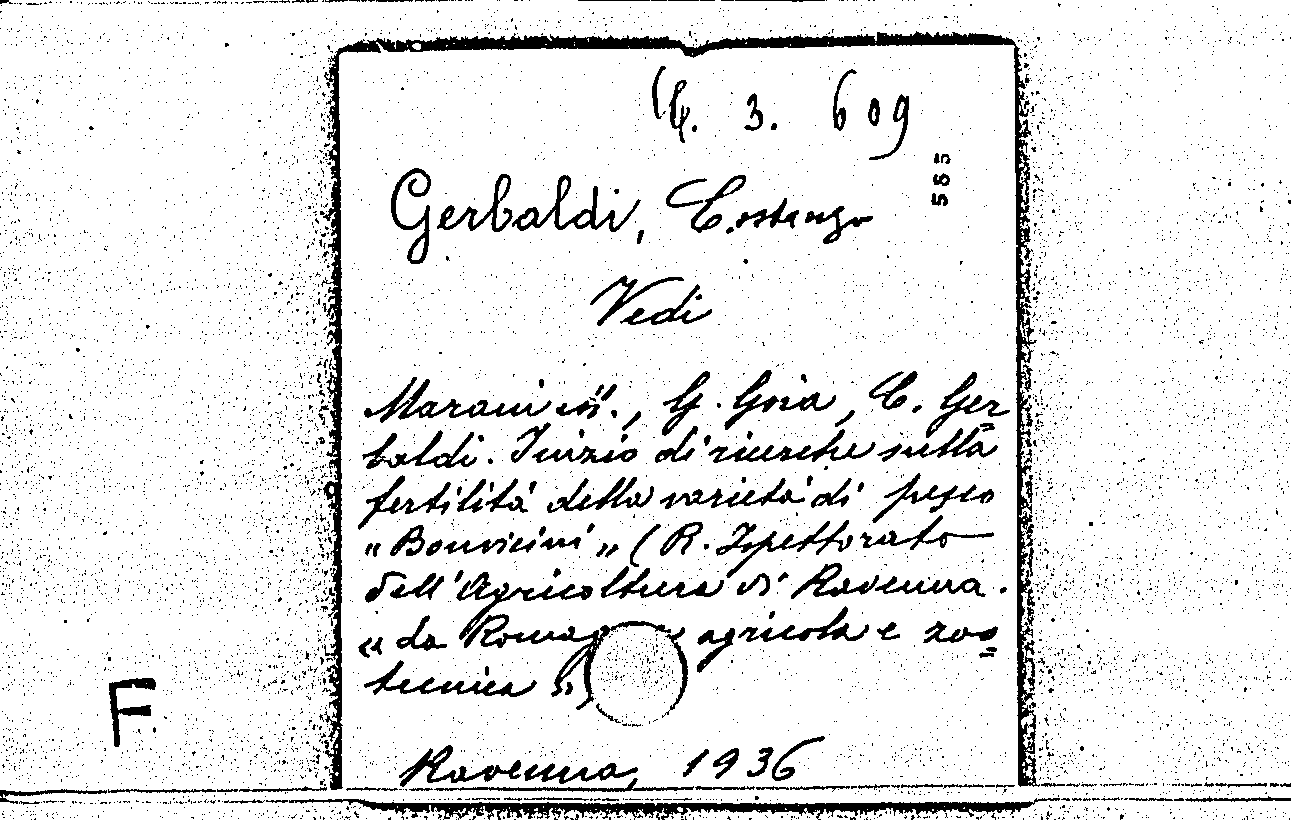 3. 609
565
Gerbaldi, Costanzo
Vedi
Marani, G. Goia, C. Ger
baldi. Inizio di ricerche sulla
fertilità della varietà di pesco
"Bonvicini" (R. Ispettorato
dell'Agricoltura di Ravenna.
"da Romagna agricola e zoo
tecnica")
F
Ravenna, 1936